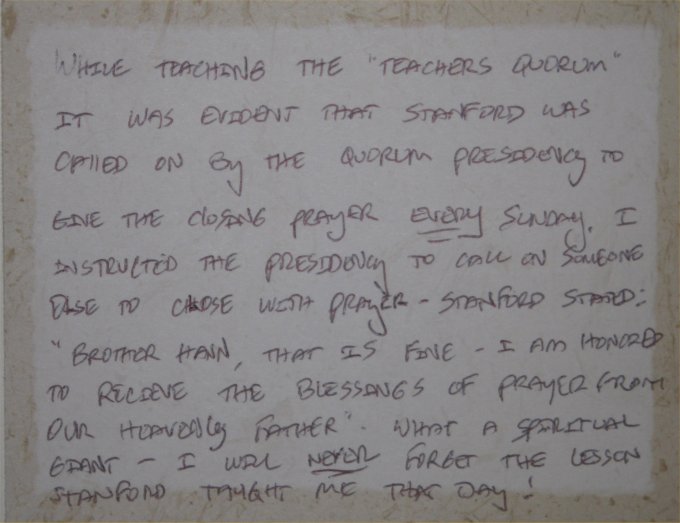 WHILE TEACHING THE "TEACHERS QUORUM"
IT WAS EVIDENT THAT STANFORD WAS
CAllED ON By THE QUORUM PRESIDENCy TO
GIVE THE CLOSING PRAYER EVERY SUNDAY. I
INSTRUCTED THE PRESIDENCY TO CALL ON SOMEONE
ELSE TO CLOSE WITH PRAYER - STANFORD STATED:
"BROTHER HANN, THAT IS FINE - I AM HONORED
TO RECIEVE THE BLESSINGS OF PRAYER FROM
OUR HEAVENLY FATHER". WHAT A SPIRITUAL
GIANT - I WILL NEVER FORGET THE LESSON
STANFORD TAUGHT ME THAT DAY!